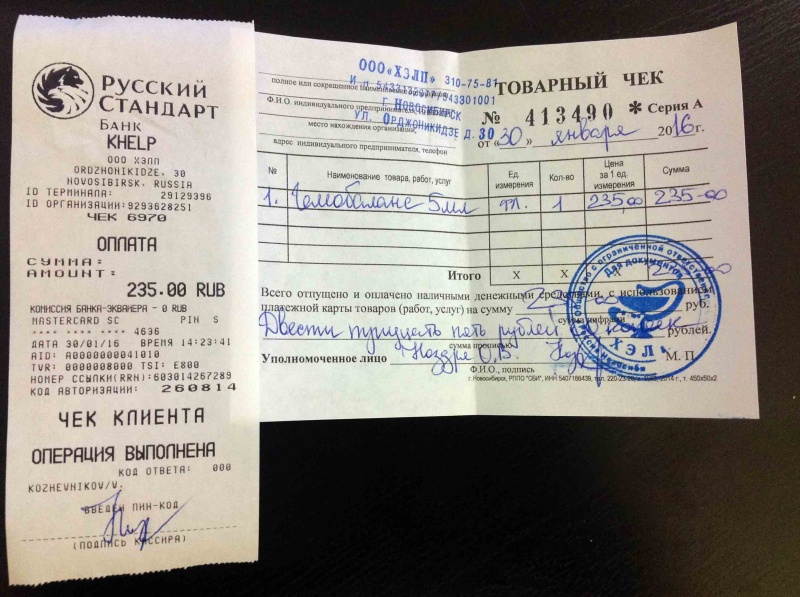 РУССКИЙ
СТАНДАРТ
БАНК
KHELP
ООО ХЭЛП
ORDZHONIKIDZE, 30
NOVOSIBIRSK, RUSSIA
ID ТЕРМИНАЛА: 29129396
ID ОРГАНИЗАЦИИ:9293628251
ЧЕК 6970
ОПЛАТА
СУММА:
AMOUNT:
235.00 RUB
КОМИССИЯ БАНКА-ЭКВАЙЕРА - 0 RUB
MASTERCARD SC PIN S
**** **** **** 4636
ДАТА 30/01/16 ВРЕМЯ 14:23:41
AID: A0000000041010
TVR: 0000008000 TSI: E800
НОМЕР ССЫЛКИ(RRN):603014267289
КОД АВТОРИЗАЦИИ: 260814
ЧЕК КЛИЕНТА
ОПЕРАЦИЯ ВЫПОЛНЕНА
КОД ОТВЕТА: 000
KOZHEVNIKOV/V.
ВВЕДЕН ПИН-КОД
(ПОДПИСЬ КАССИРА)
ООО «ХЭЛП» 310-75-81
полное или сокращенное наименование
Ф.И.О. индивидуального предпринимателя
г. НОВОСИБИРСК
место нахождения организации,
УЛ. ОРДЖОНИКИДЗЕ д. 30
адрес индивидуального предпринимателя, телефон
ТОВАРНЫЙ ЧЕК
№ 413490 * Серия А
от «30» января 2016 г.
№ Наименование товара, работ, услуг Ед. измерения Кол-во Цена за 1 ед. измерения Сумма
1. Гемобаланс 5мл фл. 1 235,00 235-00
Итого Х Х Х
Всего отпущено и оплачено наличными денежными средствами, с использованием
платежной карты товаров (работ, услуг) на сумму руб.
сумма цифрами
Двести тридцать пять рублей 00 копеек рублей.
сумма прописью
Уполномоченное лицо Ноздря О.В. М. П.
Ф.И.О., подпись
Для документов
ХЭЛП